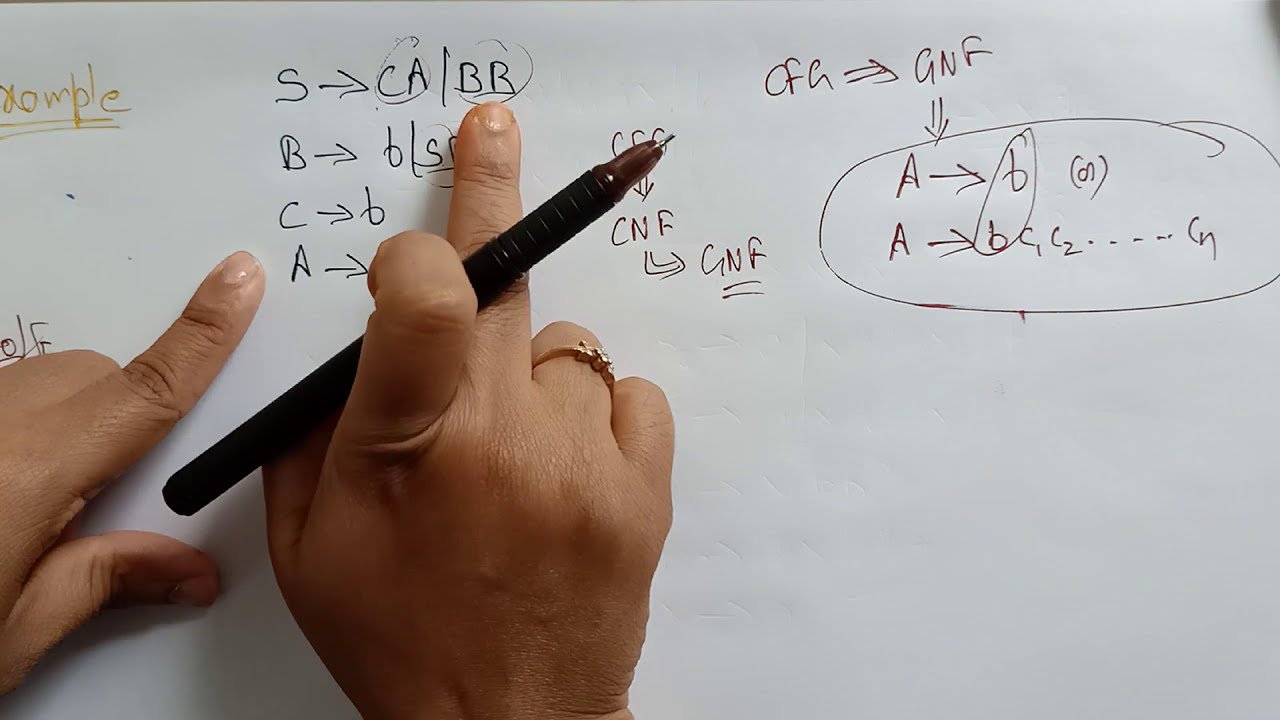 Example
S → CA | BB
B → b | S
C → b
A →
CFG
⇓
CNF
↳⇒ GNF
CFG ⇒ GNF
⇓
A → b (or)
A → b C₁ C₂ ...... Cₙ